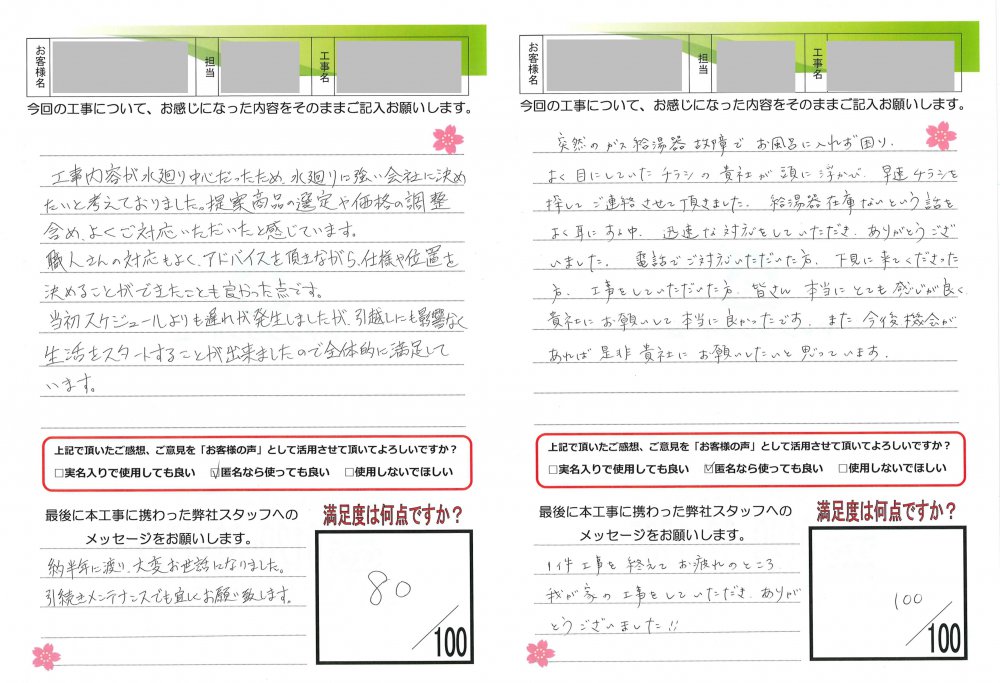 お客様名
担当
工事名
今回の工事について、お感じになった内容をそのままご記入お願いします。
工事内容が水廻り中心だったため、水廻りに強い会社に決め
たいと考えておりました。提案商品の選定や価格の調整
含め、よくご対応いただいたと感じています。
職人さんの対応もよく、アドバイスを頂きながら、仕様や位置を
決めることができたことも良かった点です。
当初スケジュールよりも遅れが発生しましたが、引越しにも影響なく
生活をスタートすることが出来ましたので全体的に満足して
います。
上記で頂いたご感想、ご意見を「お客様の声」として活用させて頂いてよろしいですか？
□実名入りで使用しても良い ☑匿名なら使っても良い □使用しないでほしい
最後に本工事に携わった弊社スタッフへの
メッセージをお願いします。
約半年に渡り、大変お世話になりました。
引続きメンテナンスでも宜しくお願い致します。
満足度は何点ですか？
80
／100
お客様名
担当
工事名
今回の工事について、お感じになった内容をそのままご記入お願いします。
突然のガス給湯器故障でお風呂に入れず困り、
よく目にしていたチラシの貴社が頭に浮かび、早速チラシを
探してご連絡させて頂きました。給湯器在庫ないという話を
よく耳にする中、迅速な対応をしていただき、ありがとうござ
いました。電話でご対応いただいた方、下見に来てくださった
方、工事をしていただいた方、皆さん本当にとても感じが良く
貴社にお願いして本当に良かったです。また今後機会が
あれば是非貴社にお願いしたいと思っています。
上記で頂いたご感想、ご意見を「お客様の声」として活用させて頂いてよろしいですか？
□実名入りで使用しても良い ☑匿名なら使っても良い □使用しないでほしい
最後に本工事に携わった弊社スタッフへの
メッセージをお願いします。
1件工事を終えてお疲れのところ
我が家の工事をしていただき、ありが
とうございました!!
満足度は何点ですか？
100
／100